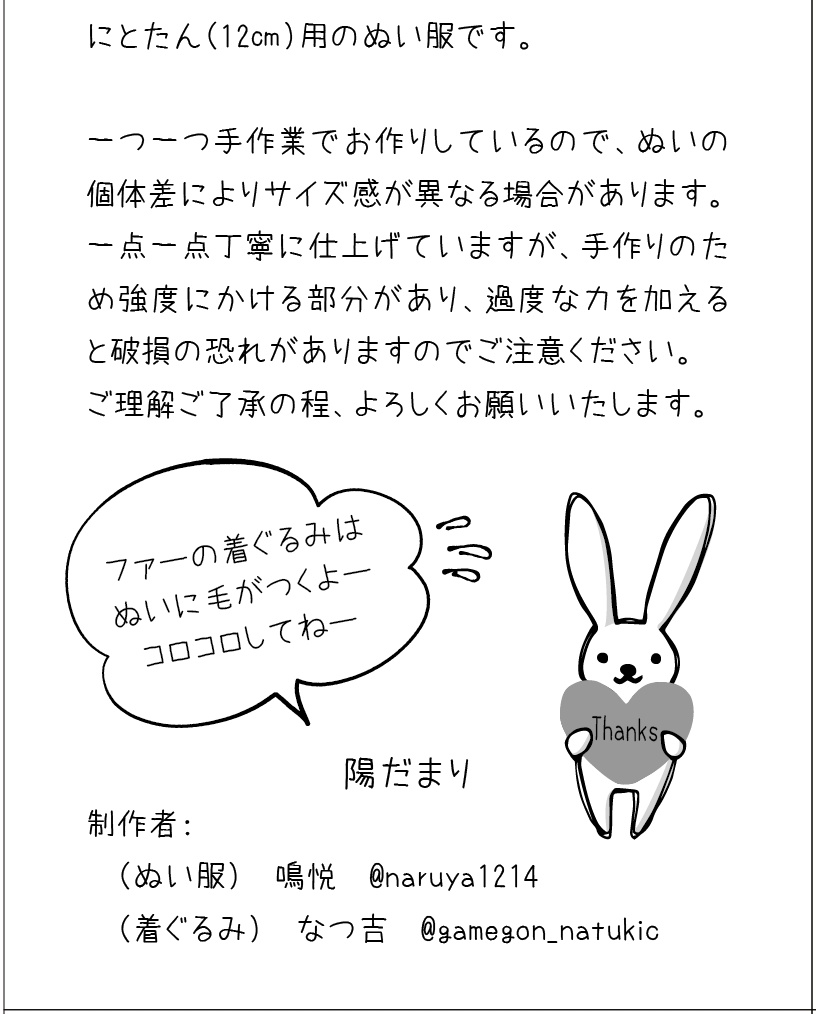 にとたん(12cm)用のぬい服です。
一つ一つ手作業でお作りしているので、ぬいの
個体差によりサイズ感が異なる場合があります。
一点一点丁寧に仕上げていますが、手作りのた
め強度にかける部分があり、過度な力を加える
と破損の恐れがありますのでご注意ください。
ご理解ご了承の程、よろしくお願いいたします。
ファーの着ぐるみは
ぬいに毛がつくよー
コロコロしてねー
Thanks
陽だまり
制作者:
(ぬい服) 鳴悦 @naruya1214
(着ぐるみ) なつ吉 @gamegon_natukic